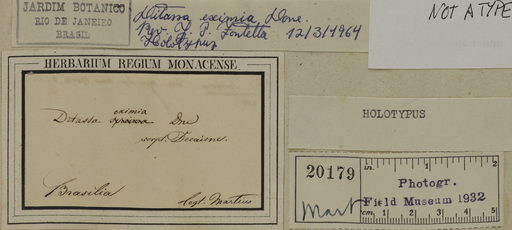 JARDIM BOTANICO
RIO DE JANEIRO
BRASIL
Ditassa eximia Dcne.
Rev. J. P. Fontella 12/3/1964
Holotypus
NOT A TYPE
HERBARIUM REGIUM MONACENSE.
eximia
Ditassa Dne
scrips. Decaisne.
Brasilia
legt. Martius
HOLOTYPUS
20179
Mart
in. 1 2
Photogr.
Field Museum 1932
cm. 1 2 3 4 5